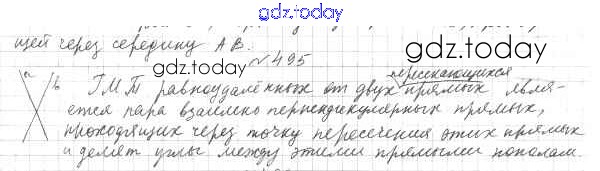 gdz.today
щей через середину АВ.
№495
gdz.today
gdz.today
a b
пересекающихся
ГМТ равноудалённых от двух прямых явля-
ется пара взаимно перпендикулярных прямых,
проходящих через точку пересечения этих прямых
и делят углы между этими прямыми пополам.